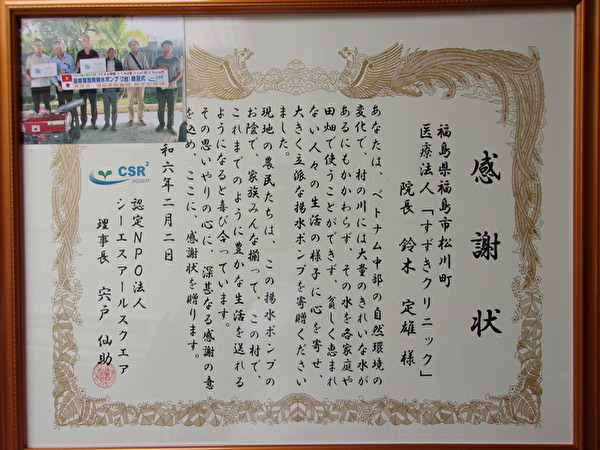 感謝状
福島県福島市松川町
医療法人「すずきクリニック」
院長 鈴木 定雄 様
あなたは、ベトナム中部の自然環境の
変化で、村の川には大量のきれいな水が
あるにもかかわらず、その水を各家庭や
田畑で使うことができず、貧しく恵まれ
ない人々の生活の様子に心を寄せ、
大きく立派な揚水ポンプを寄贈ください
ました。
現地の農民たちは、この揚水ポンプの
お陰で、家族みんな揃って、この村で、
これまでのように豊かな生活を送れる
ようになると喜び合っています。
その思いやりの心に、深甚なる感謝の意
を込め、ここに、感謝状を贈ります。
和六年二月二日
認定NPO法人
シーエスアールスクエア
理事長 宍戸 仙助
CSR2
SQUARE